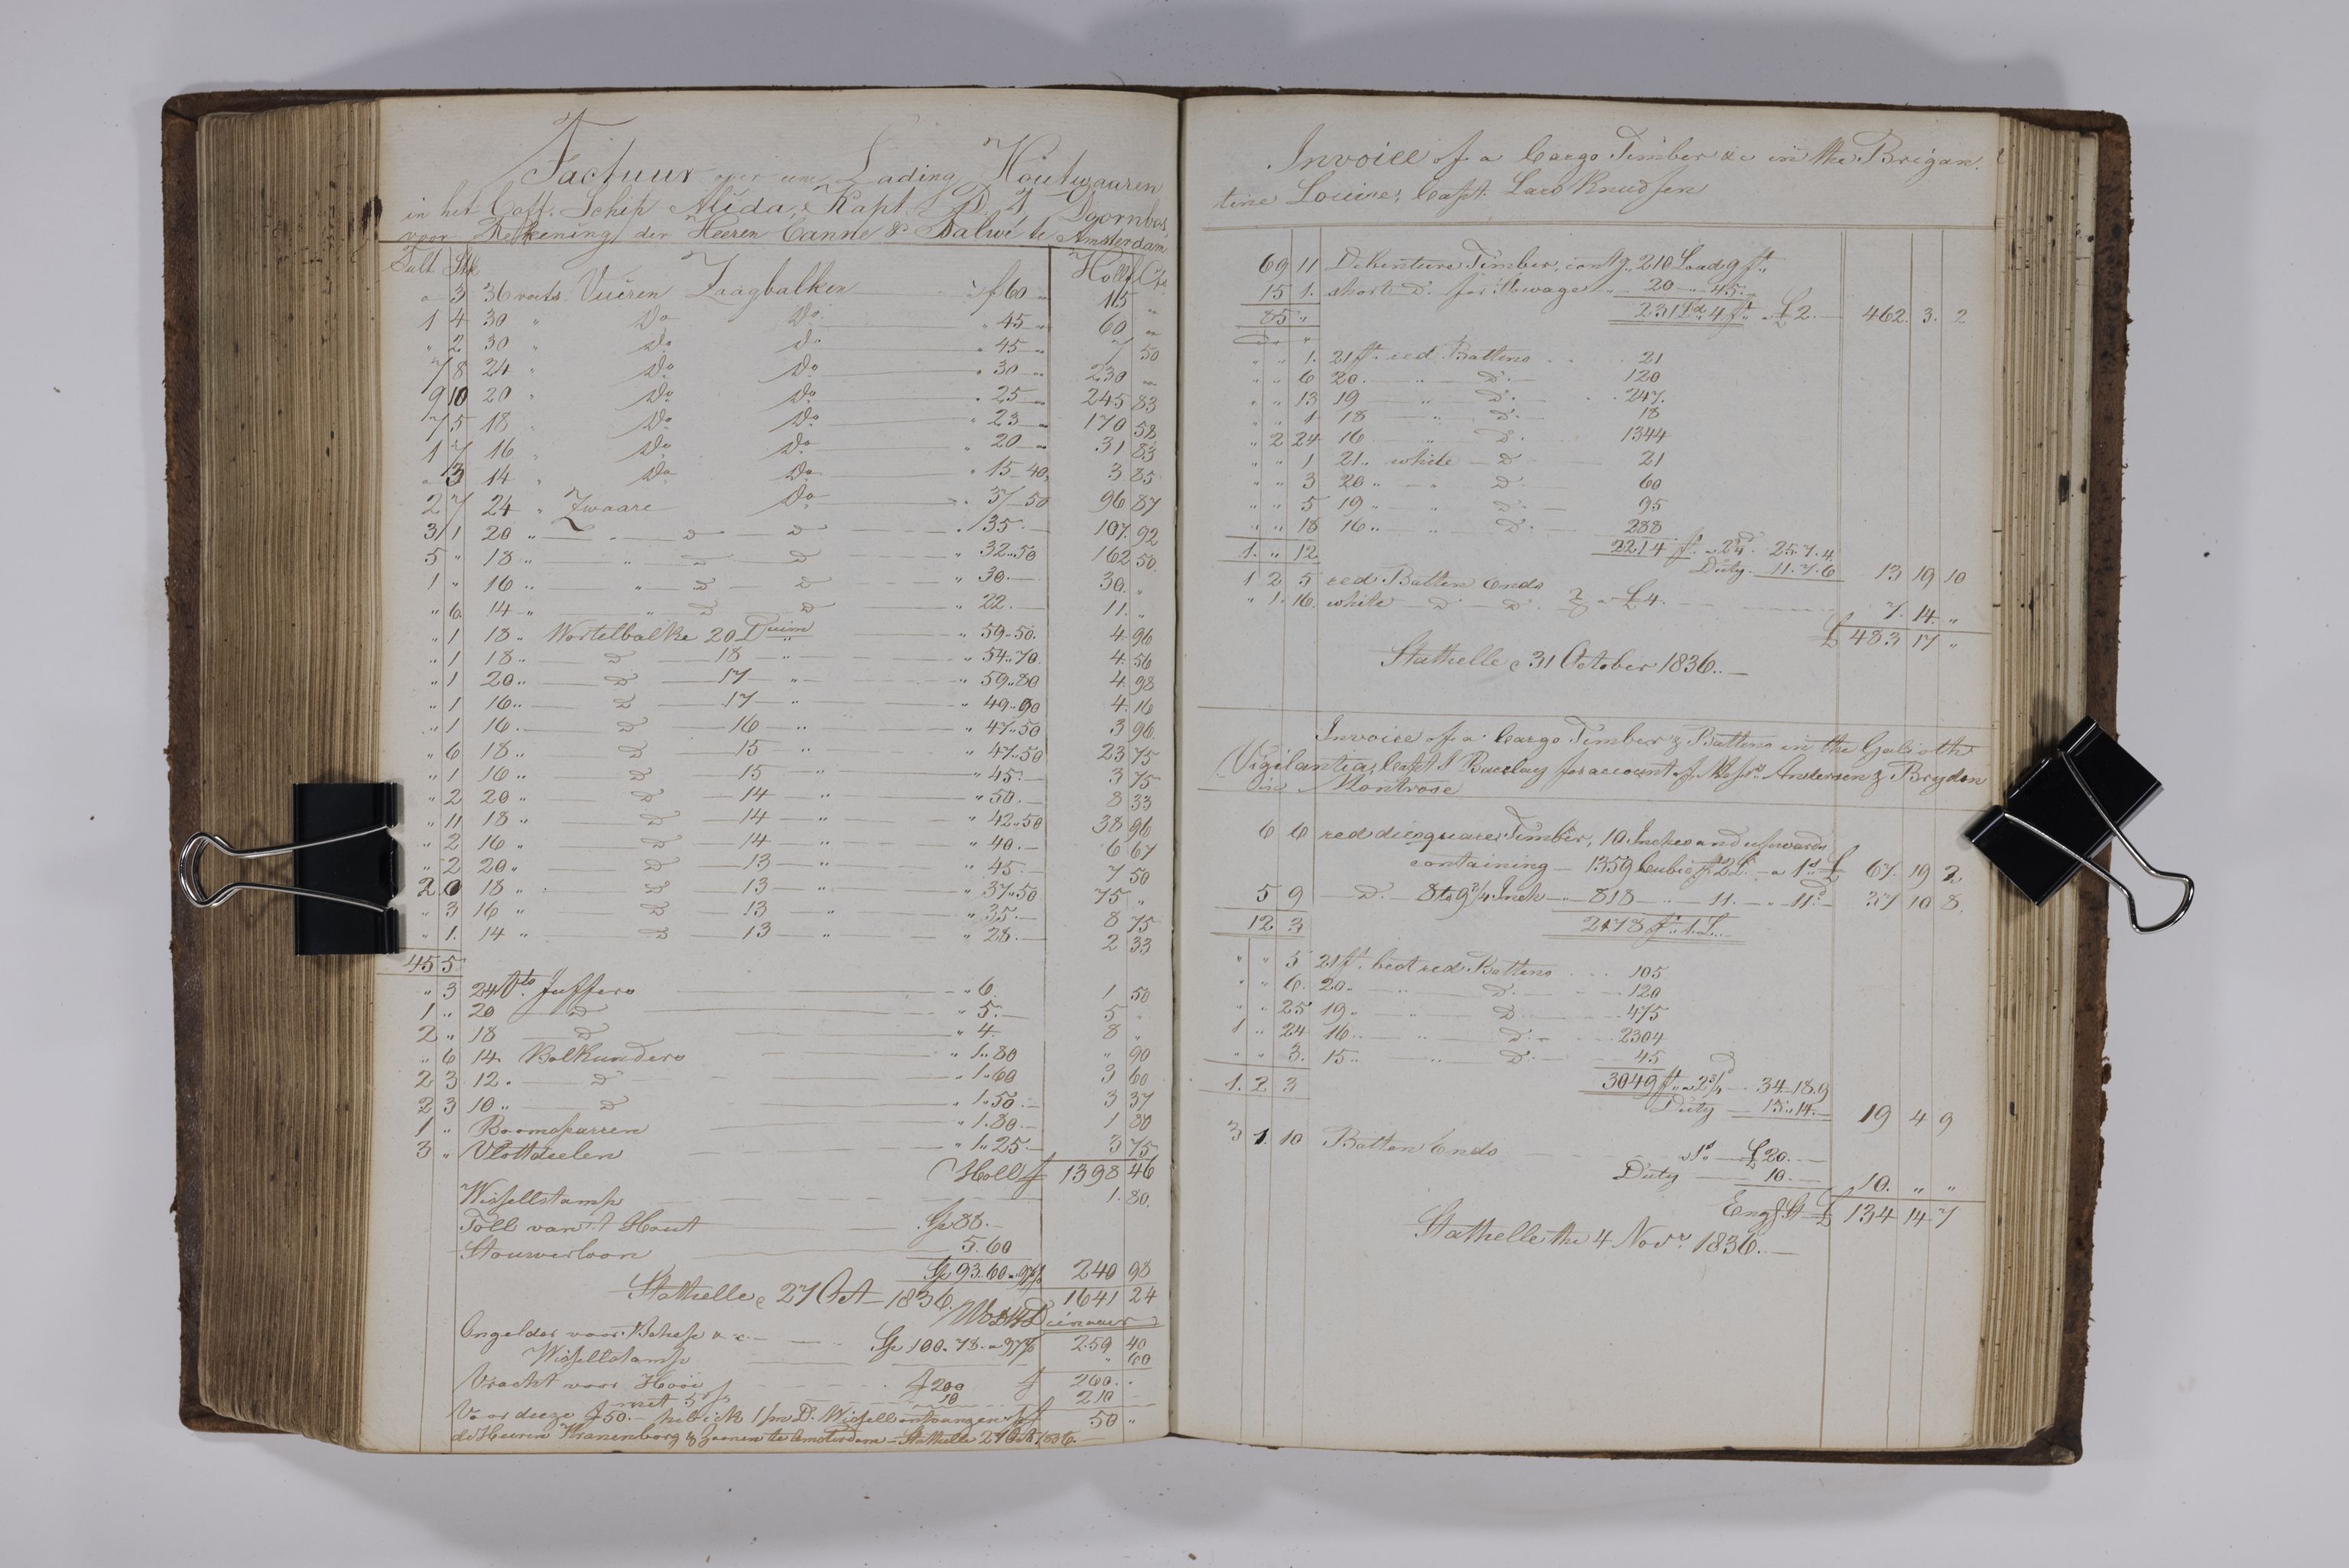 Factuur over een Lading Houtwaaren
in het Coff. Schip Alida, Kapt. P. J. Doornbos,
voor Rekening der Heeren Canne & Balwé te Amsterdam
Tult Stk Hollf. Cts
" 3 36 voets Vuëren Zaagbalken f 60 " 15 "
1 4 30 " Do Do " 45 " 60 "
" 2 30 " Do Do " 45 " 7 50
7 8 24 " Do Do " 30 " 230 "
9 10 20 " Do Do " 25 " 245 83
7 5 18 " Do Do " 23 " 170 58
1 7 16 " Do Do " 20 " 31 83
" 3 14 " Do Do " 15 40 3 85
2 7 24 " Zwaare Do " 37 50 96 87
3 1 20 " " D D " 35 — 107 92
5 " 18 " " D D " 32 " 50 162 50
1 " 16 " " D D " 30 — 30 "
" 6 14 " " D D " 22 — 11 "
" 1 18 " Wortelbalke 20 Duim " 59 " 50 4 96
" 1 18 " D 18 " " 54 " 70 4 56
" 1 20 " D 17 " " 59 " 80 4 98
" 1 16 " D 17 " " 49 " 90 4 16
" 1 16 " D 16 " " 47 " 50 3 96
" 6 18 " D 15 " " 47 " 50 23 75
" 1 16 " D 15 " " 45 — 3 75
" 2 20 " D 14 " " 50 — 8 33
" 11 18 " D 14 " " 42 " 50 38 96
" 2 16 " D 14 " " 40 — 6 67
" 2 20 " D 13 " " 45 — 7 50
2 0 18 " D 13 " " 37 " 50 75 "
" 3 16 " D 13 " " 35 — 8 75
" 1 14 " D 13 " " 28 — 2 33
45 5
" 3 24 vts Juffers " 6 1 50
1 " 20 D " 5 — 5 "
2 " 18 D " 4 8 "
" 6 14 Bolkunders " 1 " 80 " 90
2 3 12 " D " 1 " 60 3 60
2 3 10 " D " 1 " 50 — 3 37
1 " Boomsparren " 1 " 80 — 1 80
3 " Vlottdeelen " 1 " 25 — 3 75
Holl f 1398 46
Wissellstamp 1. 80.
Toll van 't Hout Sp 88. —
Stouwerloon 5. 60
Sp 93. 60 240 98
Stathelle, 27 Oct 1836. 1641 24
Dienaar
Ongelder voor Schip &c. Sp 100. 78 259 40
Wissellstamp " 60
Vracht voor Hooi f 200 f 260 "
met 5 10 210
Voor deeze f 50. — heb ik Wissell ontvangen f 50 "
de Heeren Kranenborg & Zoonen te Amsterdam — Stathelle 27 Oct 1836.
Invoice of a Cargo Timber &c in the Brigan
tine Louise, Capt. Lars Knudsen
69 11 Debenture Timber, contg. 210 Load 9 ft.
15 1. short D. for Stowage " 20 " 45.
85 " 231 Ld. 4 ft. a £ 2. — 462. 3. 2
" " 1. 21 ft. red Battens 21
" " 6 20. " D. 120
" " 13 19 " D. 247.
" " 1 18 " D. 18
" 2 24 16 " D. 1344
" " 1 21 " white D 21
" " 3 20 " " D. 60
" " 5 19 " " D. 95
" " 18 16 " " D. 288
1. " 12 2214 ft. a 2¾d. 25. 7. 4.
Duty 11. 7. 6 13 19 10
1 2 5 red Batten Ends
" 1. 16. white D. D. a £ 4. 7. 14. "
£ 483 17 "
Stathelle 31 October 1836. —
Invoice of a Cargo Timber & Battens in the Galioth
Vigilantia, Capt J Barclay for account of Messrs. Andersen & Brydon
in Montrose
6 6 red diesquares Timber, 10 Inches and upwards
containing — 1359 Cubic ft 2 L. a 1s £ 67. 19 2
5 9 D. 8 to 9¾ Inch " 818 " 11. " 11d 37 10 8.
12 3 2178 ft. 1 L.
" " 5 21 ft. best red Battens 105
" " 6. 20 " D. 120
" " 25 19 " D. 475
1 " 24 16 " D. 2304
" " 3. 15 " D. 45
1. 2 3 3049 ft. a 2¾d 34. 18. 9
Duty 15 " 14 — 19 4 9
3 1. 10 Batten Ends £ 20. —
Duty 10. — 10. " "
Engl. St £ 134 14 7
Stathelle the 4 Novr. 1836. —